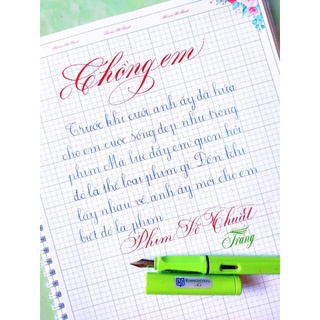 Chồng em
Trước khi cưới, anh ấy đã hứa
cho em cuộc sống đẹp như trong
phim. Mà lúc đấy em quên hỏi
đó là thể loại phim gì. Đến khi
lấy nhau về, anh ấy mới cho em
biết đó là phim
Phim Kĩ Thuật
Trang